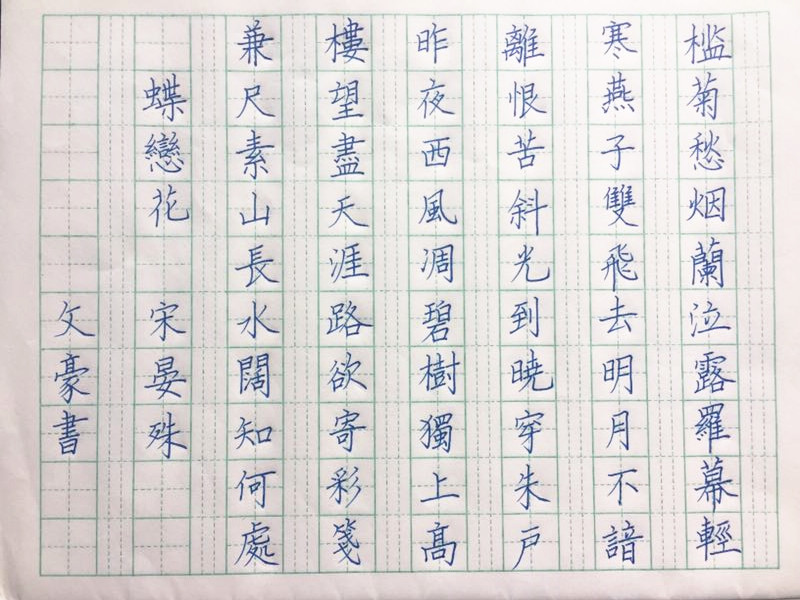 槛菊愁烟蘭泣露羅幕輕
寒燕子雙飛去明月不諳
離恨苦斜光到曉穿朱戸
昨夜西風凋碧樹獨上高
樓望盡天涯路欲寄彩箋
兼尺素山長水闊知何處
蝶戀花 宋晏殊
文豪書